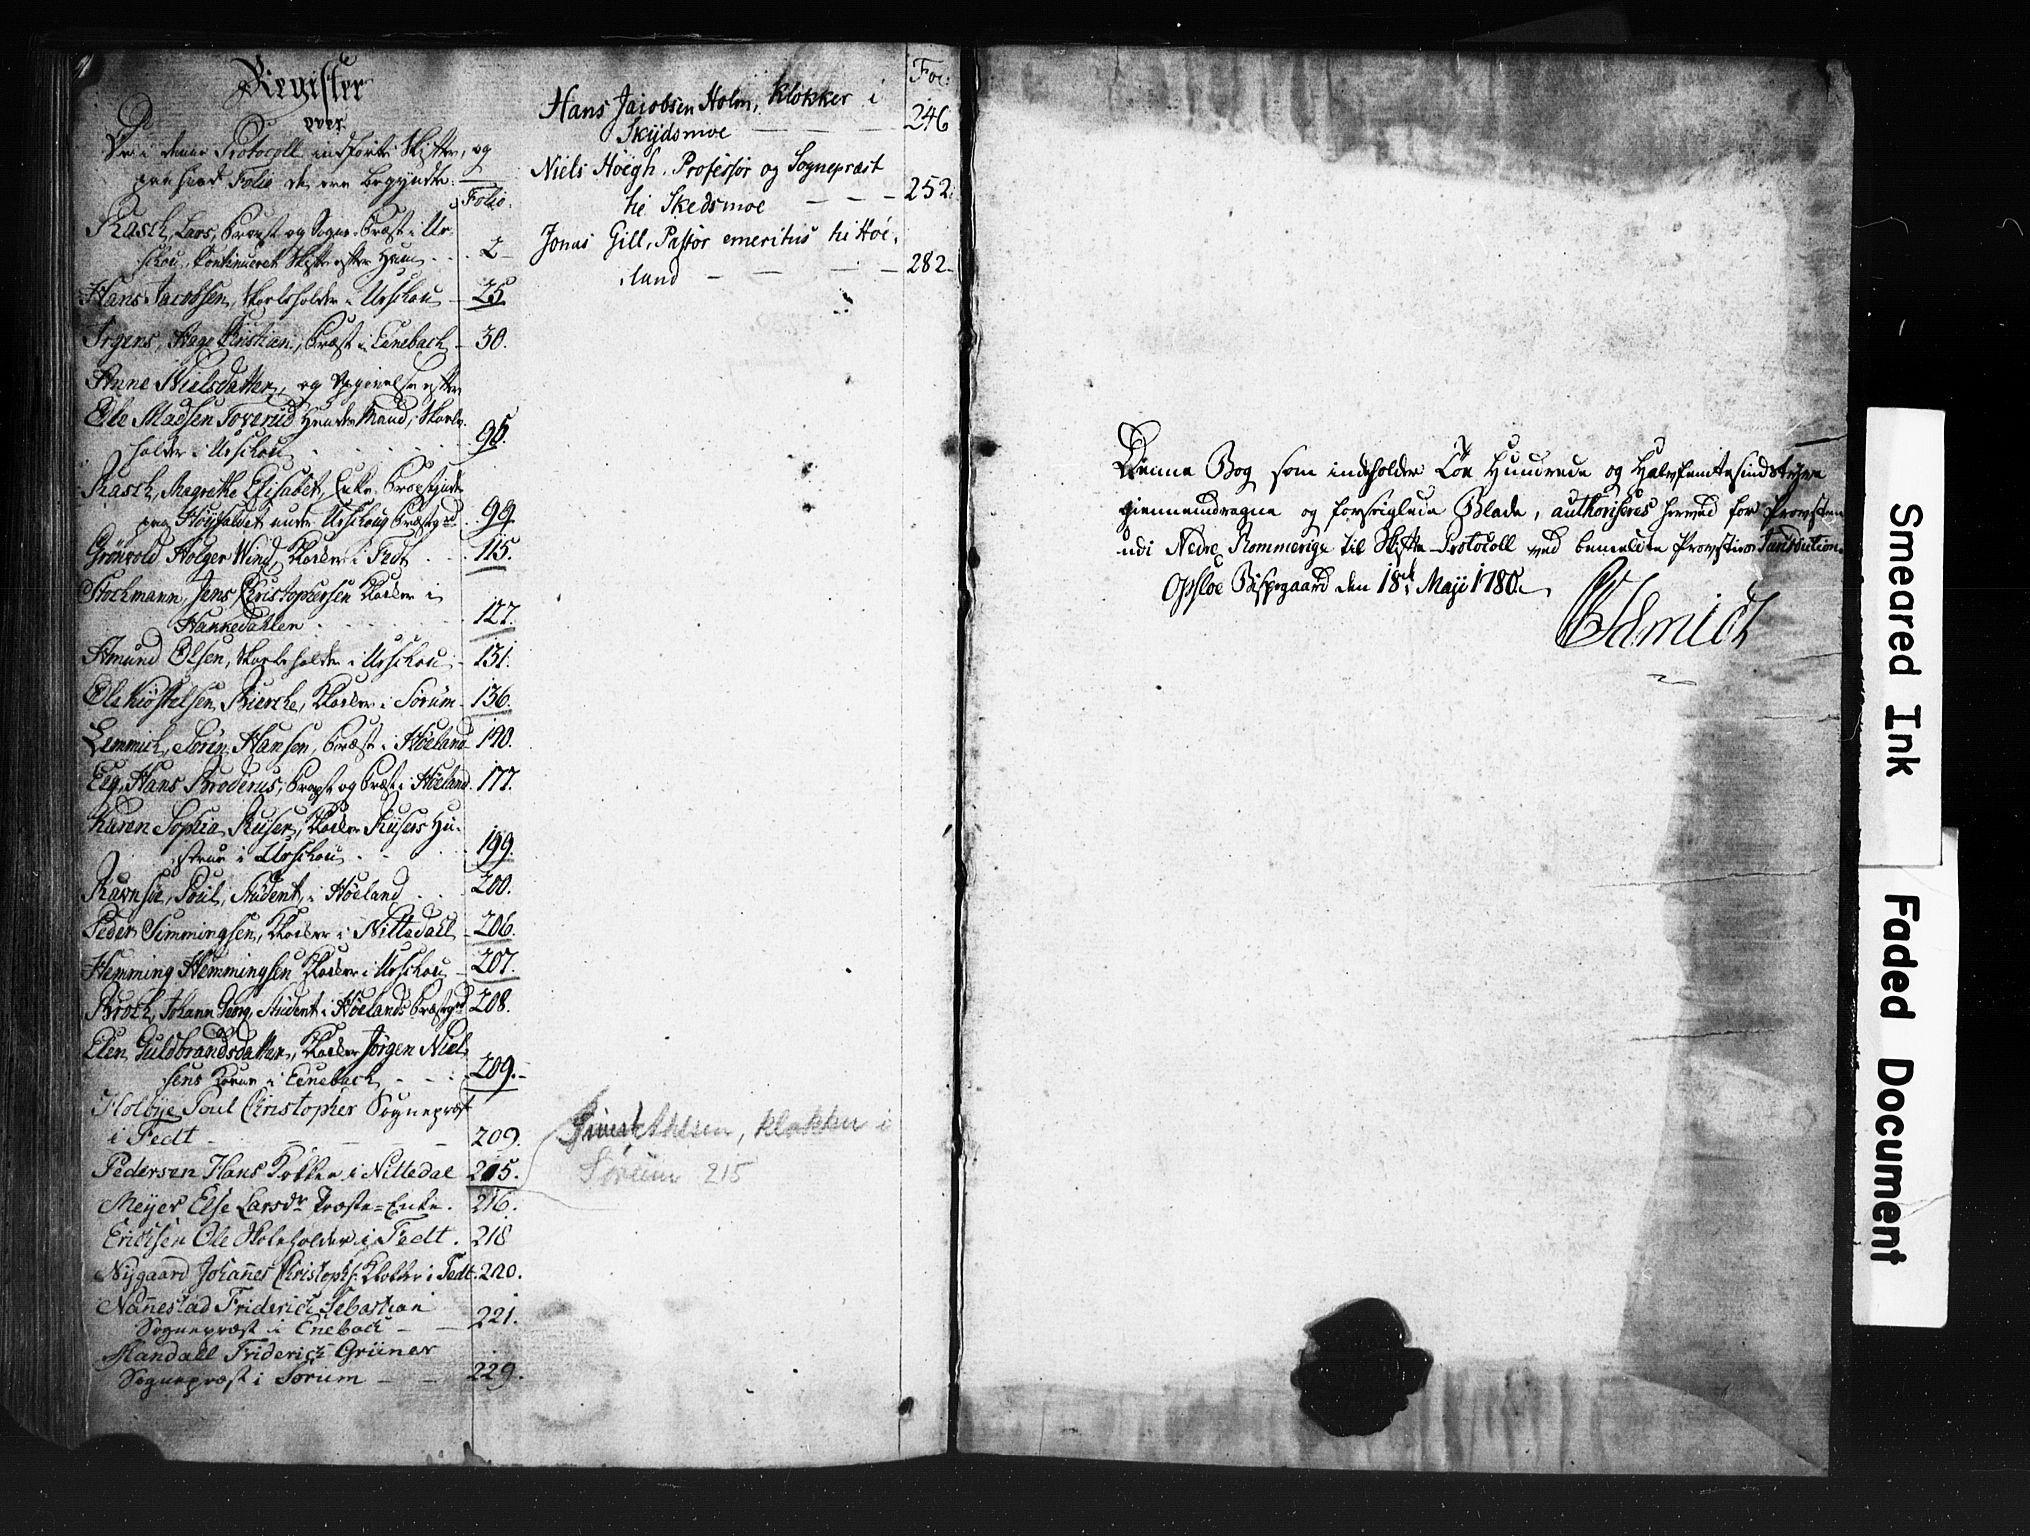 Register
over
De i denne Protocoll indførte Skifter, og
paa hvad Folio de ere begyndte.
Folio.
Rasch, Lars, Provst og Sogne-Præst i Ur-
schou, Continueret Skifte efter Ham 2
Hans Jacobsen, Skoleholder i Urschou 25
Irgens, Aage Christian, Præst i Enebach 30.
Anne Nielsdatter, og Opgivelse efter
Ole Madsen Toverud Hendes Mand, Skole-
holder i Urschou 96.
Rasch, Magrethe Elisabet, Enke
paa Høyhaldet under Urschoug Præstegd. 99
Grönvold Holger Wind, Klocker i Fedt 115.
Stockmann, Jens Christophersen Klocker i
Hankedahlen 127.
Amund Olsen, Skoleholder i Urschou 131.
Ole Kiøstelsen Bierche, Klocker i Sørum 136.
Lemmich, Søren Hansen, Præst i Høeland 140.
Elg, Hans Broderus, Provst og Præst i Høeland. 177.
Karen Sophia Ruser, Klocker Rusers Hu-
strue i Urschou 199.
Ravnsøe, Poul, Student, i Høeland 200.
Peder Simmingsen, Klocker i Nittedahl 206.
Hemming Hemmingsen Klocker i Urschou 207.
Broch, Johann Georg, Student i Høelands Præstegd 208.
Elen Guldbrandsdatter, Klocker Jörgen Niel-
sens Kone i Enebach 209.
Holbye Poul Christopher Sognepræst
i Fedt 209.
Pedersen Hans Klokker i Nittedal 215.
Meyer Else Larsdr Præste-Enke. 216.
Erichsen Ole Skoleholder i Fedt. 218
Nygaard Johannes Christophs. Klokker i Fedt. 220.
Nannestad Friderich Sebastian
Sognepræst i Enebach 221.
Mandall Friderich Grüner
Sognepræst i Sørum 229.
Fol:
Hans Jacobsen Holm, Klokker i
Skydsmoe 246
Niels Høegh, Professor og Sognepræst
til Skedsmoe 252.
Jonas Gill, Pastor emeritus til Høe-
land 282
Ahlsen, Klokker i
Sørum 215
Denne Bog som indeholder Toe Hundrede og Halvfemtesindstyve
giennemdragne og forseiglede Blade, authoriseres herved for Provsten
udi Nedre Rommerige til Skifte-Protocoll ved bemeldte Provsties Jurisdiction.
Opsloe Bispegaard den 18de Maji 1780.
Schmidt
Smeared Ink
Faded Document